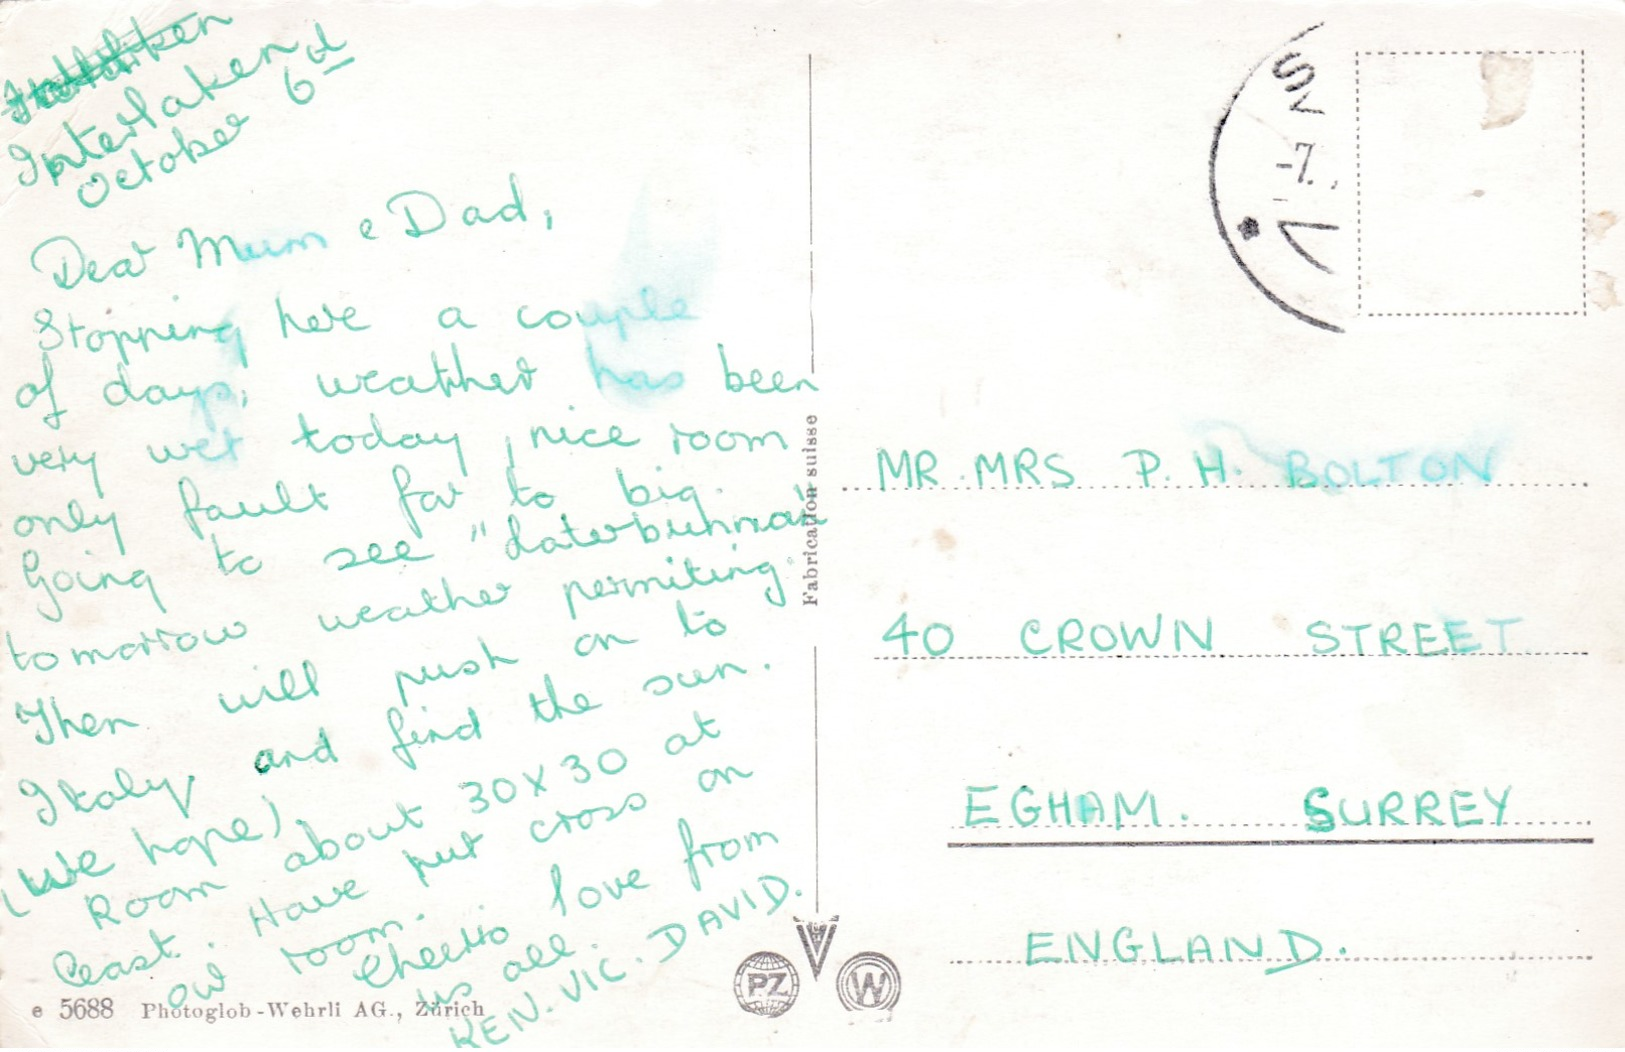 Interlaken
October 6d
Dear Mum & Dad,
Stopping here a couple
of days, weather has been
very wet today, nice room
only fault far to big.
Going to see "Laterbunnan"
tomorrow weather permiting.
Then will push on to
Italy, and find the sun.
(We hope).
Room about 30x30 at
least. Have put cross on
our room.
Cheerio love from
us all.
KEN. VIC. DAVID.
e 5688 Photoglob-Wehrli AG., Zürich
Fabrication suisse
PZ
W
-7.
MR. MRS P. H. BOLTON
40 CROWN STREET
EGHAM. SURREY
ENGLAND.